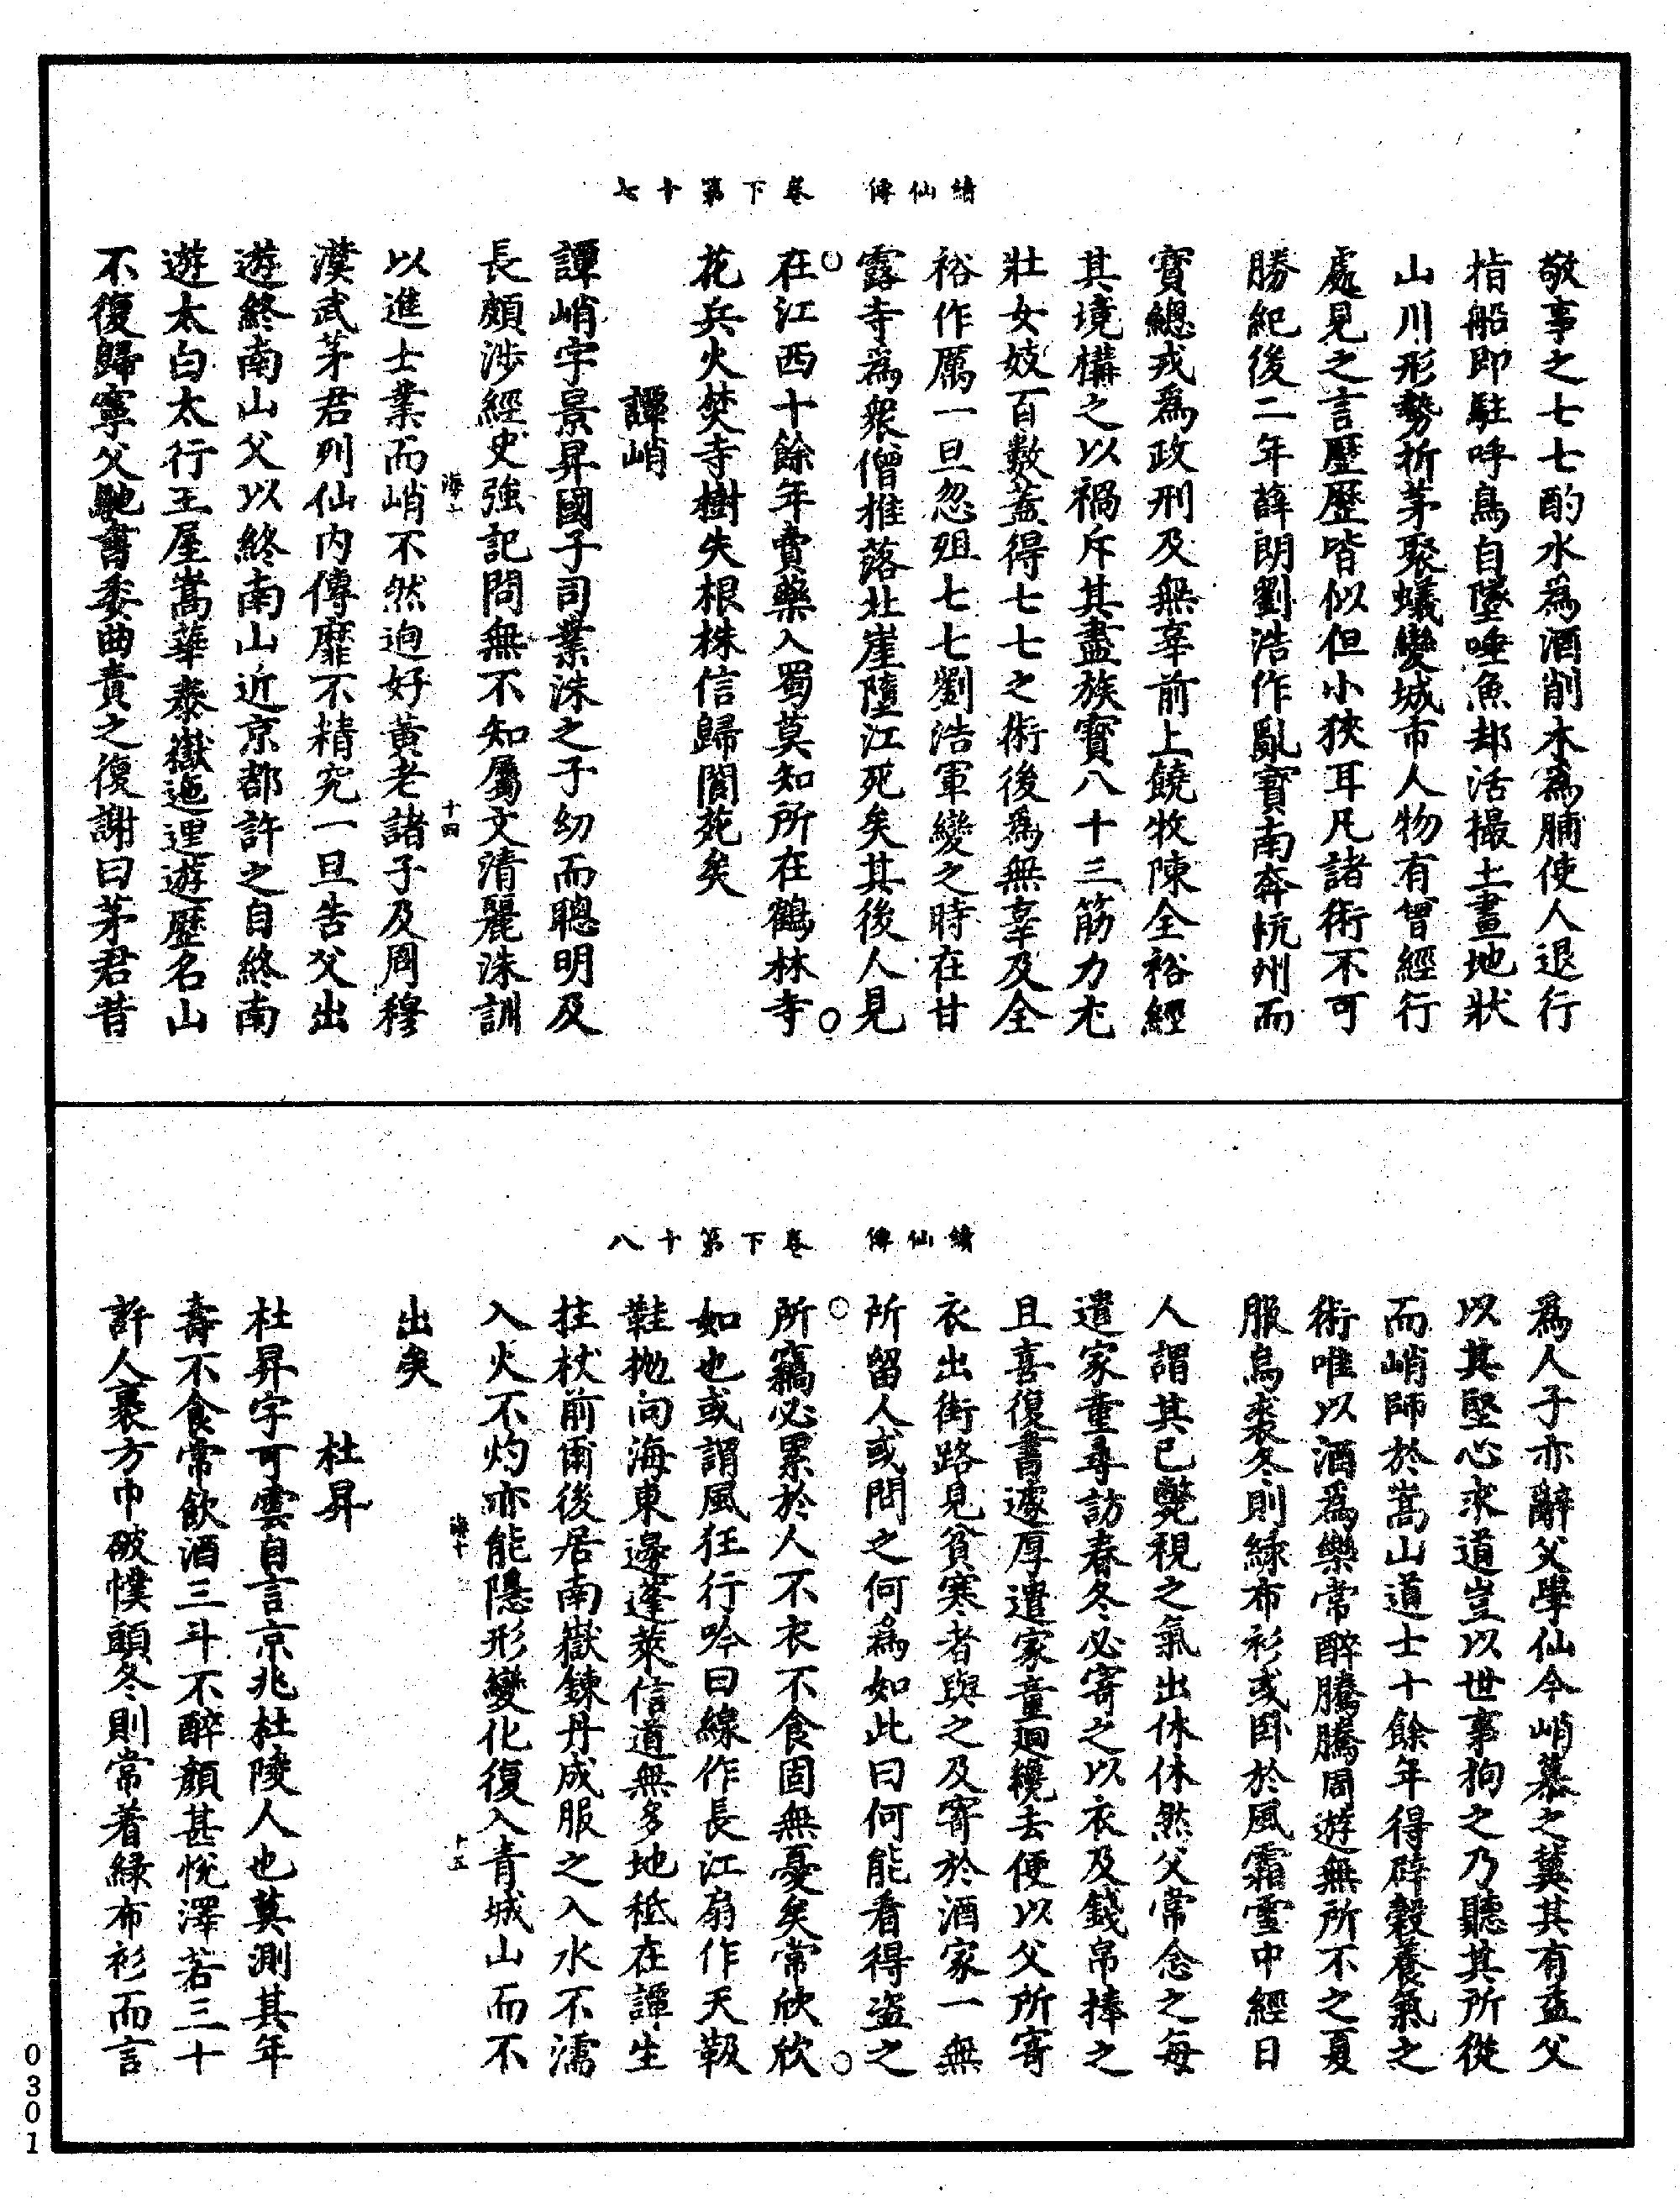 續仙傳　卷下第十七
敬事之七七酌水爲酒削木爲脯使人退行
指船即駐呼鳥自墜唾魚却活撮土畫地狀
山川形勢折茅聚蟻變城市人物有曾經行
處見之言歷歷皆似但小狹耳凡諸術不可
勝紀後二年薛朗劉浩作亂寶南奔杭州而
寶總戎爲政刑及無辜前上饒牧陳全裕經
其境構之以禍斥其盡族寶八十三筋力尤
壯女妓百數蓋得七七之術後爲無辜及全
裕作厲一旦忽殂七七劉浩軍變之時在甘
露寺爲衆僧推落北崖墮江死矣其後人見
在江西十餘年賣藥入蜀莫知所在鶴林寺
花兵火焚寺樹失根株信歸閬苑矣
譚峭
譚峭字景昇國子司業洙之子幼而聰明及
長頗涉經史強記問無不知屬文清麗洙訓
海十
十四
以進士業而峭不然迥好黃老諸子及周穆
漢武茅君列仙內傳靡不精究一旦告父出
遊終南山父以終南山近京都許之自終南
遊太白太行王屋嵩華泰嶽迤邐遊歷名山
不復歸寧父馳書委曲責之復謝曰茅君昔
續仙傳　卷下第十八
爲人子亦辭父學仙今峭慕之冀其有益父
以其堅心求道豈以世事拘之乃聽其所從
而峭師於嵩山道士十餘年得辟穀養氣之
術唯以酒爲樂常醉騰騰周遊無所不之夏
服烏裘冬則綠布衫或臥於風霜雪中經日
人謂其已斃視之氣出休休然父常念之每
遣家童尋訪春冬必寄之以衣及錢帛捧之
且喜復書遽厚遣家童迴纔去便以父所寄
衣出街路見貧寒者與之及寄於酒家一無
所留人或問之何爲如此曰何能看得盜之
所竊必累於人不衣不食固無憂矣常欣欣
如也或謂風狂行吟曰線作長江扇作天靸
鞋抛向海東邊蓬萊信道無多地秪在譚生
拄杖前爾後居南嶽鍊丹成服之入水不濡
入火不灼亦能隱形變化復入青城山而不
海十
十五
出矣
杜昇
杜昇字可雲自言京兆杜陵人也莫測其年
壽不食常飲酒三斗不醉顏甚悅澤若三十
許人裹方巾破幞頭冬則常着綠布衫而言
0301